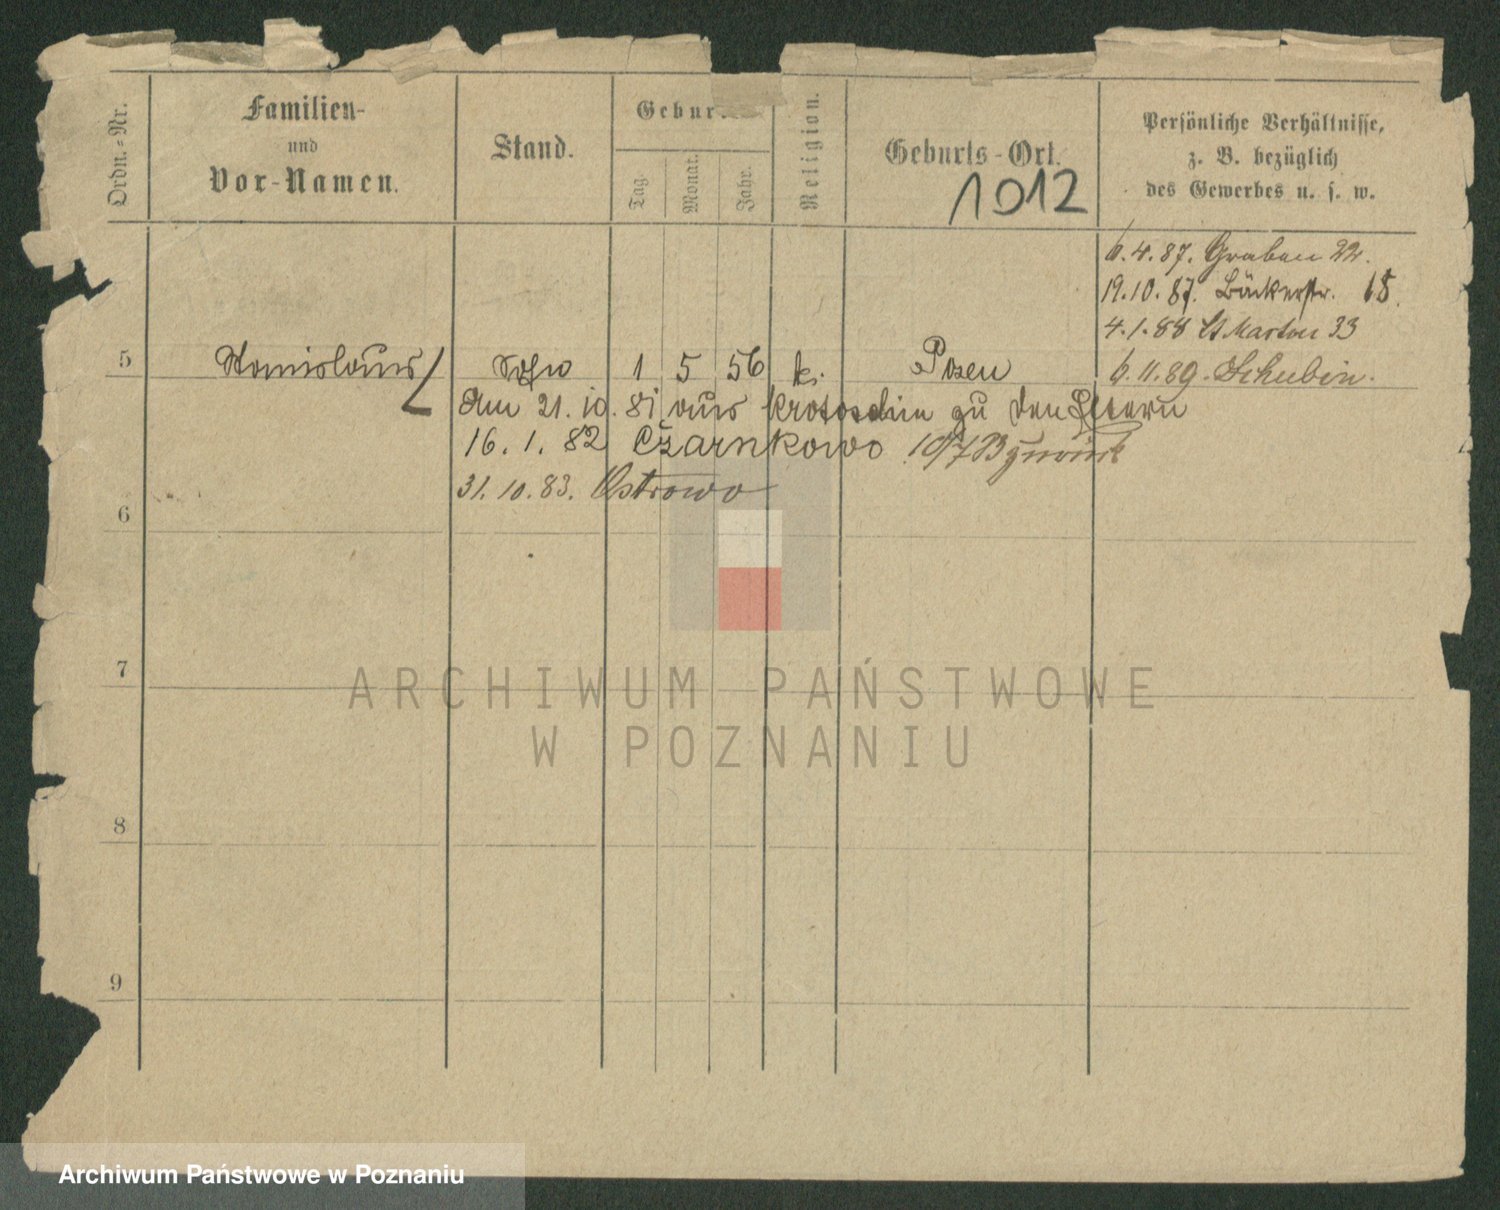 Ordn.-Nr.
Familien-
und
Vor-Namen.
Stand.
Gebur
Tag.
Monat.
Jahr.
Religion.
Geburts-Ort.
1012
Persönliche Verhältnisse,
z. B. bezüglich
des Gewerbes u. s. w.
6.4.87. Graben 22.
19.10.87. Bäckerstr. 18.
4.1.88 St Martin 33
5 Stanislaus Sohn 1 5 56 k. Posen 6.11.89. Schubin.
Am 21.10.81 aus Krotoschin zu den Eltern
16.1.82 Czarnkowo 10/7 83 zurück
31.10.83. Ostrowo
6
7
8
9
ARCHIWUM PAŃSTWOWE
W POZNANIU
Archiwum Państwowe w Poznaniu